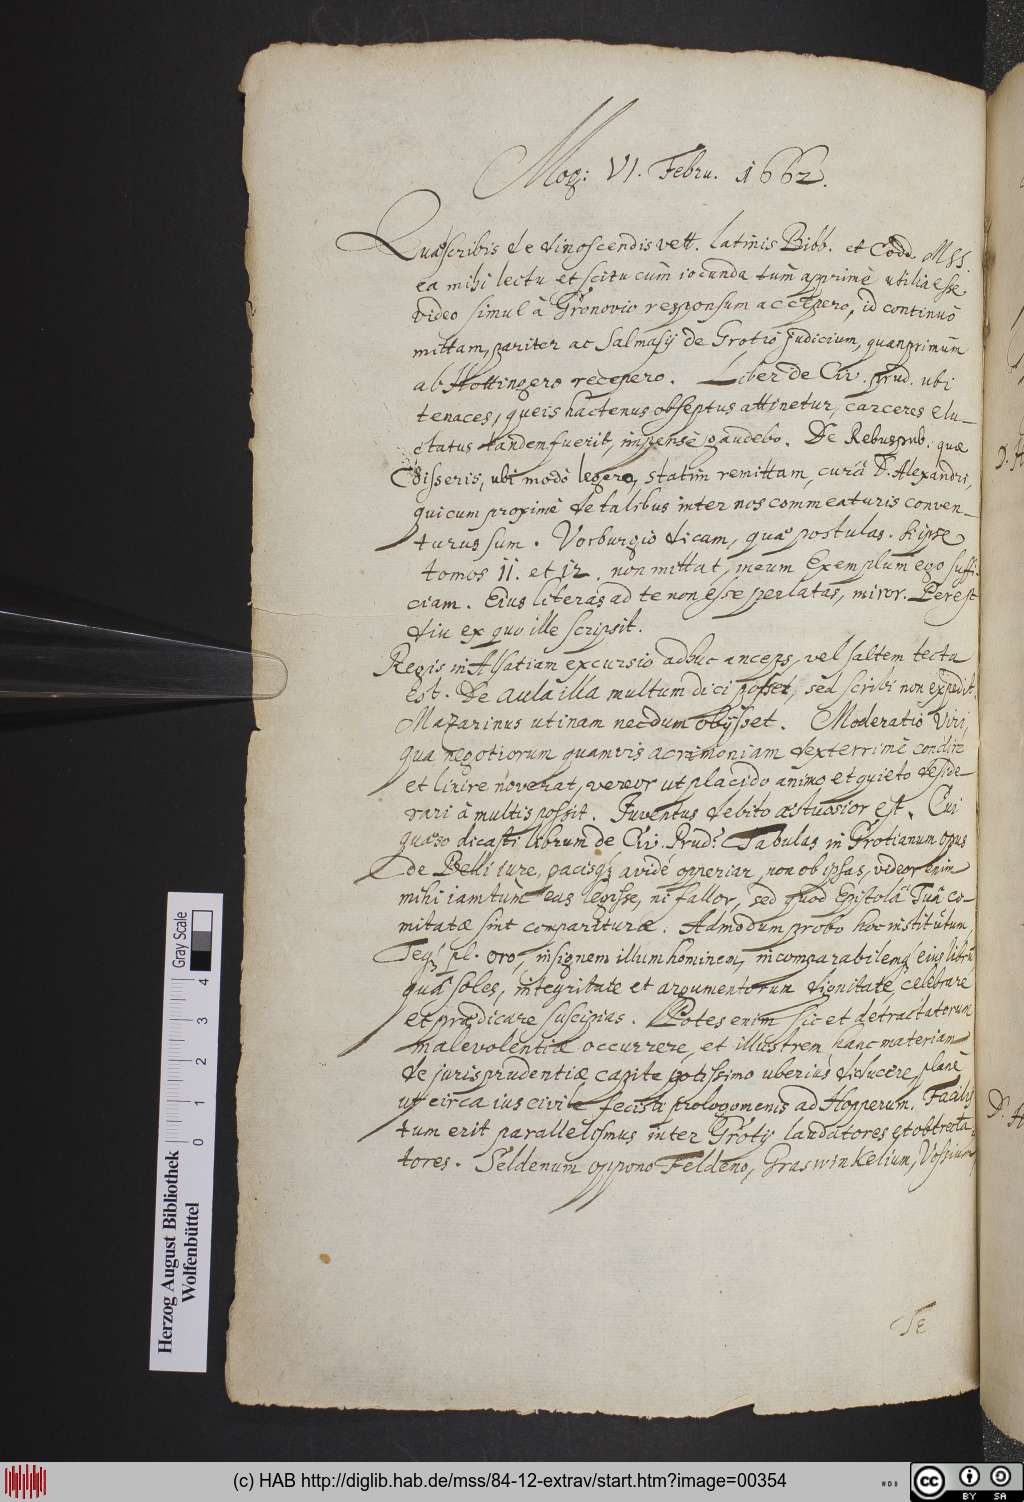 Mog: VI. Febru. 1662.
Quæ scribis de dinoscendis vett. latinis Bibb. et Codd. MSS.
ea mihi lectu et scitu cùm iocunda tùm apprimè utilia esse
video simul à Gronovio responsum accepero, id continuò
mittam, pariter ac Salmasij de Grotio judicium, quamprimùm
ab Hottingero recepero. Liber de Civ. prud. ubi
tenaces, queis hactenus obseptus attinetur, carceres elu-
ctatus tandem fuerit, impensè gaudebo. De Rebuspub. quæ
edisseris, ubi modò legero, statim remittam, curâ D. Alexandri,
quicum proximè de talibus inter nos commeaturis conven-
turus sum. Vorburgio dicam, quæ postulas. Si ipse
tomos 11. et 12. non mittat, meum Exemplum ego suffi-
ciam. Eius literas ad te non esse perlatas, miror. Per est
diu ex quo ille scripsit.
Regis in Alsatiam excursio adhuc anceps, vel saltem tecta
est. De aula illa multum dici posset, sed scribi non expedit.
Mazarinus utinam necdum obijsset. Moderatio Viri,
qua negotiorum quamvis acrimoniam dexterrimè condire
et linire noverat, vereor ut placido animo et quieto deside-
rari à multis possit. Juventus debito æstuosior est. Cui
quæso dicasti librum de Civ. Prud: Tabulas in Grotianum opus
de Belli iure, pacisq; avidè opperiar, non ob ipsas, videor enim
mihi iamtùm eas legisse, ni fallor, sed quod Epistolâ Tuâ co-
mitatæ sint compariturae. Admodum probo hoc institutum,
Teq; pl. oro, insignem illum hominem, incomparabilemq; eius librũ
quâ soles, integritate et argumentorum dignitate celebrare
et prædicare suscipias. Potes enim sic et detractatorum
malevolentiæ occurrere, et illustrem hanc materiam
de jurisprudentiæ capite potissimo uberius diducere, planè
ut circa ius civile fecisti prologomenis ad Hopperum. Facilis
tum erit parallelismus inter Grotij laudatores et obtrecta-
tores. Seldenum oppono Feldeno, Graswinkelium, Vossium,
Te
D.
D.
Herzog August Bibliothek
Wolfenbüttel
0 1 2 3 4
Gray Scale
(c) HAB http://diglib.hab.de/mss/84-12-extrav/start.htm?image=00354
cc BY SA